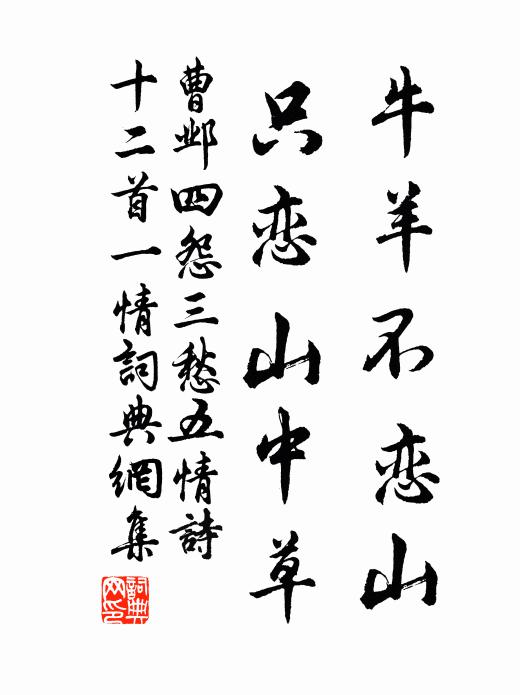 牛羊不恋山
只恋山中草
曹邺四怨三愁五情詩
十二首一情詞典網集
詞典網印